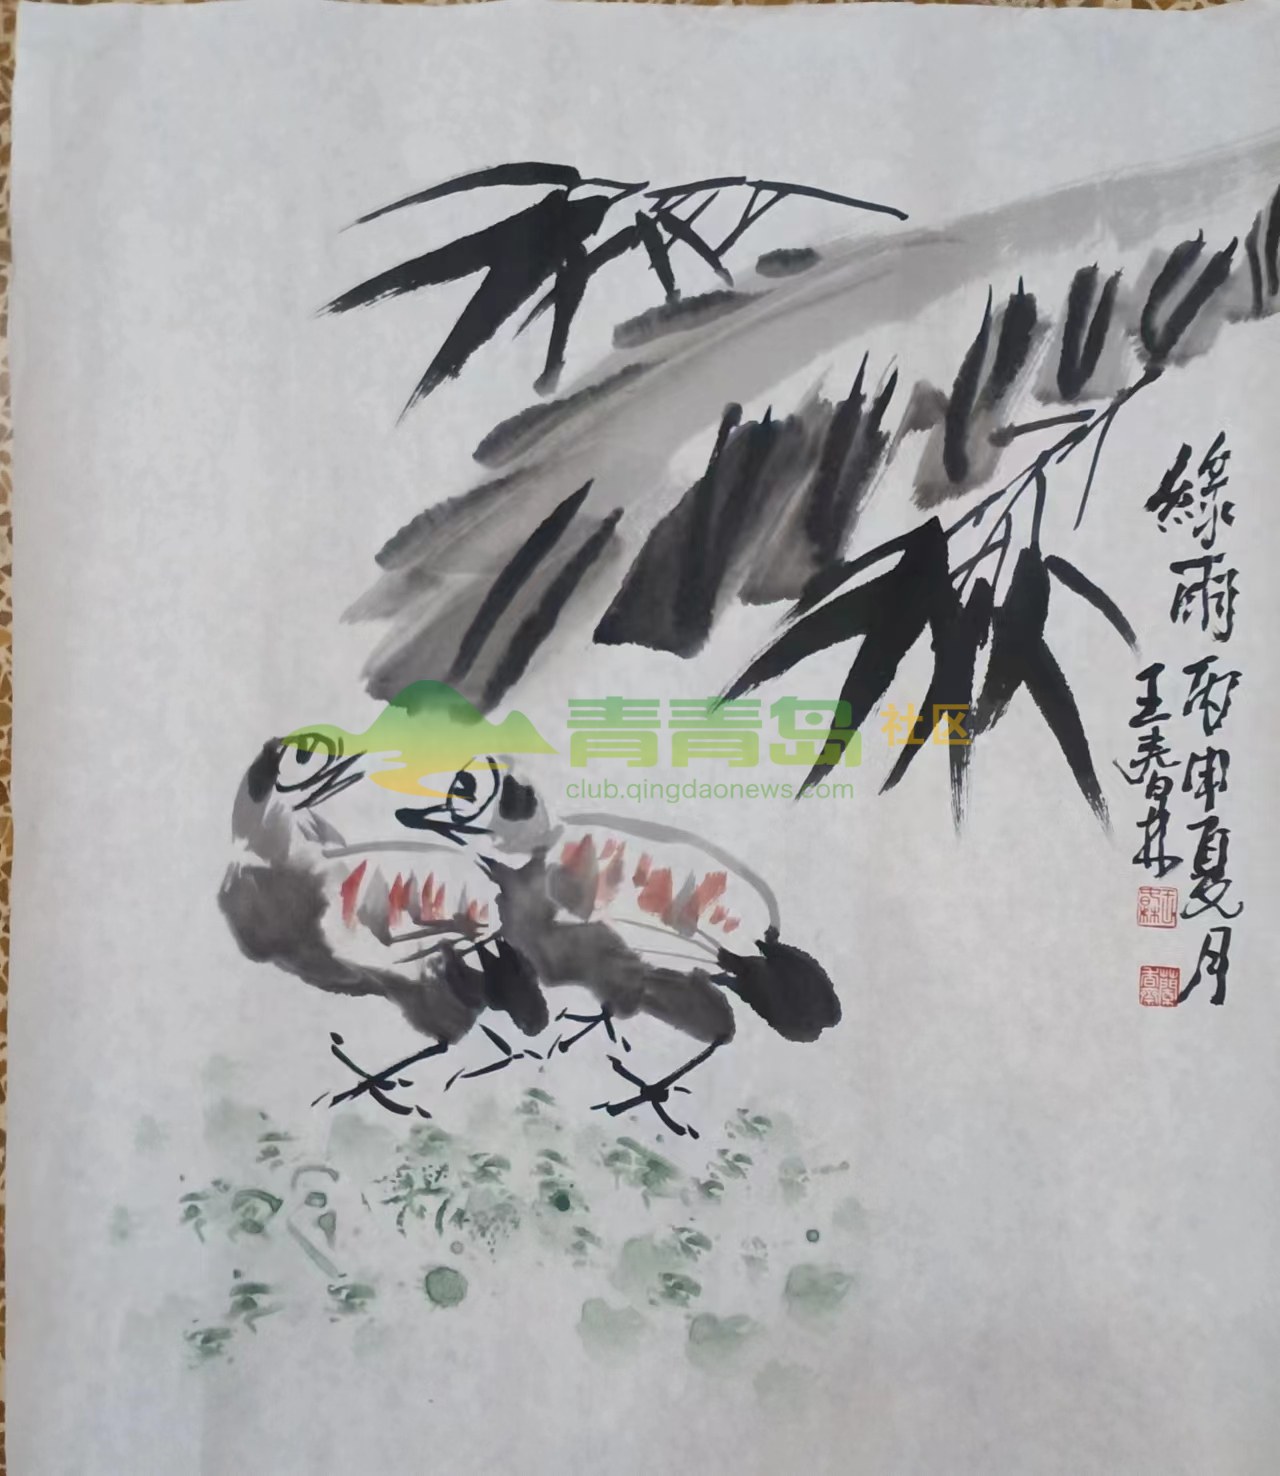 綠雨丙申夏月
王春林
青青岛社区
club.qingdaonews.com